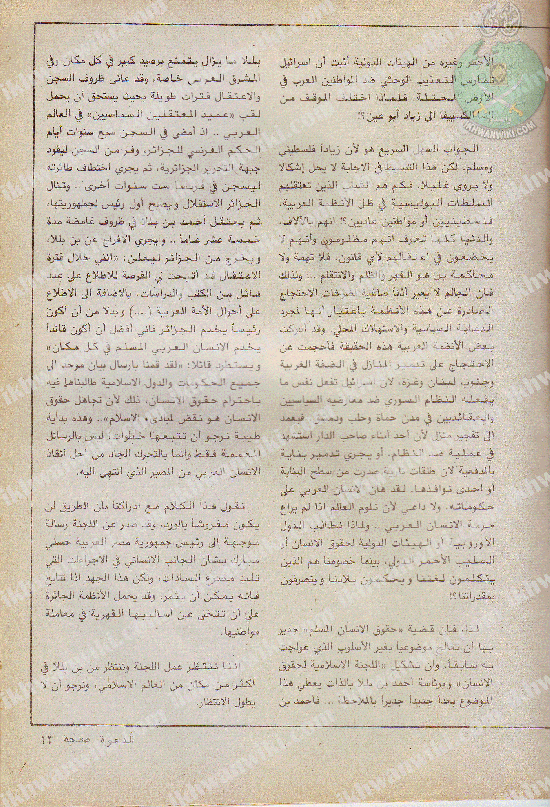 الأحمر وغيره من الهيئات الدولية أثبت أن اسرائيل
تمارس التعذيب الوحشي ضد المواطنين العرب في
الأرض المحتلة فلماذا اختلف الموقف من
الى زياد أبو عين؟
الجواب السهل السريع هو لأن زياداً فلسطيني
ومسلم. لكن هذا التبسيط في الاجابة لا يحل إشكالا
ولا يروي غليلا. فكم هم الشباب الذين تعتقلهم
السلطات البوليسية في ظل الأنظمة العربية،
فلسطينيين أو مواطنين عاديين؟! انهم بالآلاف،
والدنيا كلها تعرف انهم مظلومون وأنهم لا
يخضعون في اعتقالهم لأي قانون، فلا تهمة ولا
محاكمة بل هو القهر والظلم والانتقام .. ولذلك
فإن العالم لا يعير أذناً صاغية لصرخات الاحتجاج
الصادرة عن هذه الأنظمة باعتبار أنها لمجرد
الدعاية السياسية والاستهلاك المحلي. وقد أدركت
بعض الأنظمة العربية هذه الحقيقة فأحجمت عن
الاحتجاج على تدمير المنازل في الضفة الغربية
وجنوب لبنان وغزة، لأن اسرائيل تفعل نفس ما
يفعله النظام السوري ضد معارضيه السياسيين
والعقائديين في مدن حماة وحلب ودمشق. فيعمد
الى تفجير منزل لأن أحد أبناء صاحب الدار استشهد
في عملية ضد النظام، أو يجري تدمير بناية
بالمدفعية لأن طلقات نارية صدرت من سطح البناية
أو احدى نوافذها. لقد هان الانسان العربي على
حكوماته. ولا داعي لأن نلوم العالم اذا لم يراع
حرمة الانسان العربي .. ولماذا نطالب الدول
الأوروبية أو الهيئات الدولية لحقوق الانسان أو
الصليب الأحمر الدولي، بينما خصومنا هم الذين
يتكلمون لغتنا ويحكمون بلادنا ويتصرفون
بمقدراتنا؟!
لذا، فإن قضية «حقوق الانسان المسلم» جدير
بها أن تعالج موضوعيا بغير الأسلوب الذي عولجت
به سابقاً، وأن تشكيل «اللجنة الاسلامية لحقوق
الانسان» وبرئاسة أحمد بن بللا بالذات يعطي هذا
الموضوع بعداً جديداً جديراً بالملاحظة .. فأحمد بن
بللا ما يزال يتمتع برصيد كبير في كل مكان وفي
المشرق العربي خاصة، وقد عانى ظروف السجن
والاعتقال فترات طويلة بحيث يستحق أن يحمل
لقب «عميد المعتقلين السياسيين» في العالم
العربي .. اذ أمضى في السجن سبع سنوات أيام
الحكم الفرنسي للجزائر، وفر من السجن ليقود
جبهة التحرير الجزائرية، ثم يجري اختطاف طائرته
ليسجن في فرنسا ست سنوات أخرى.. وتنال
الجزائر الاستقلال ويصبح أول رئيس لجمهوريتها،
ثم يعتقل أحمد بن بللا في ظروف غامضة مدة
خمسة عشر عاماً.. ويجري الافراج عن بن بللا،
ويخرج من الجزائر ليعلن: «انني خلال فترة
الاعتقال قد أتيحت لي الفرصة للاطلاع على عدد
هائل من الكتب والدراسات، بالاضافة الى الاطلاع
على أحوال الأمة العربية (...) وبدلا من أن أكون
رئيساً يخدم الجزائر فاني أفضل أن أكون قائداً
يخدم الانسان العربي المسلم في كل مكان»
ويستطرد قائلا: «لقد قمنا بارسال بيان موحد الى
جميع الحكومات والدول الاسلامية طالبناها فيه
باحترام حقوق الانسان، ذلك لأن تجاهل حقوق
الانسان هو نقض لمبادىء الاسلام».. وهذه بداية
طيبة نرجو أن تتبعها خطوات، ليس بالرسائل
المعممة فقط وانما بالتحرك الجاد من أجل انقاذ
الانسان العربي من المصير الذي انتهى اليه.
نقول هذا الكلام مع ادراكنا بأن الطريق لن
يكون مفروشاً بالورد، وقد صدر عن اللجنة رسالة
موجهة الى رئيس جمهورية مصر العربية حسني
مبارك بشأن الجانب الانساني في الاجراءات التي
تلت السادات، ولكن هذا الجهد اذا تتابع
فانه يمكن أن يثمر. وقد يحمل الأنظمة الجائرة
على أن تتخلى عن أساليبها القهرية في معاملة
مواطنيها.
اننا ننتظر عمل اللجنة وننتظر من بن بللا في
أكثر من مكان من العالم الاسلامي، ونرجو أن لا
يطول الانتظار.
الدعوة صفحة ١٢
IKHWANWIKI.COM
ikhwanwiki.com